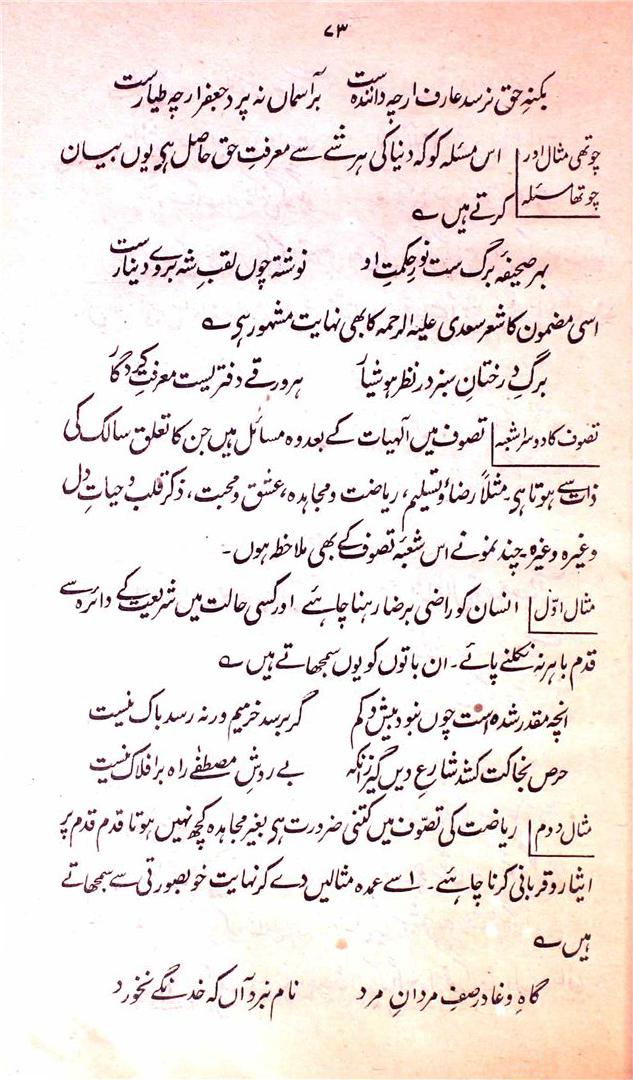 ۷۳
بکنہِ حق نرسد عارف ارچہ دانندہ است برآسماں نہ پرد جعفر ارچہ طیار ست
چوتھی مثال اور اس مسئلہ کو کہ دنیا کی ہر شے سے معرفتِ حق حاصل ہی یوں بیان
چوتھا مسئلہ کرتے ہیں ؎
بہر صحیفۂ برگ ست نورِ حکمتِ او نوشتہ چوں لقبِ شہ بروے دینار ست
اسی مضمون کا شعر سعدی علیہ الرحمہ کا بھی نہایت مشہور ہی ؎
برگِ درختانِ سبز در نظر ہوشیار ہر ورقے دفتریست معرفتِ کردگار
تصوف کا دوسرا شعبہ تصوف میں الٰہیات کے بعد وہ مسائل ہیں جن کا تعلق سالک کی
ذات سے ہوتا ہی۔ مثلاً رضاؤ تسلیم، ریاضت و مجاہدہ، عشق و محبت، ذکر قلب و حیاتِ دل
وغیرہ وغیرہ۔ چند نمونے اس شعبۂ تصوف کے بھی ملاحظہ ہوں۔
مثال اوّل انسان کو راضی برضا رہنا چاہئے اور کسی حالت میں شریعت کے دائرہ سے
قدم باہر نہ نکلنے پائے۔ ان باتوں کو یوں سمجھاتے ہیں ؎
انچہ مقدر شدہ است چوں نبود بیش و کم گر برسد خرمیم ور نہ رسد باک نیست
حرص بخاکت کشد شارعِ دیں گیر ازانکہ بے روشِ مصطفےٰ راہ بر افلاک نیست
مثال دوم ریاضت کی تصوّف میں کتنی ضرورت ہی بغیر مجاہدہ کچھ نہیں ہوتا قدم قدم پر
ایثار و قربانی کرنا چاہئے۔ اسے عمدہ مثالیں دے کر نہایت خوبصورتی سے سمجھاتے
ہیں ؎
گاہِ وغا در صفِ مردانِ مرد نام نبرد آں کہ خدنگے نخورد